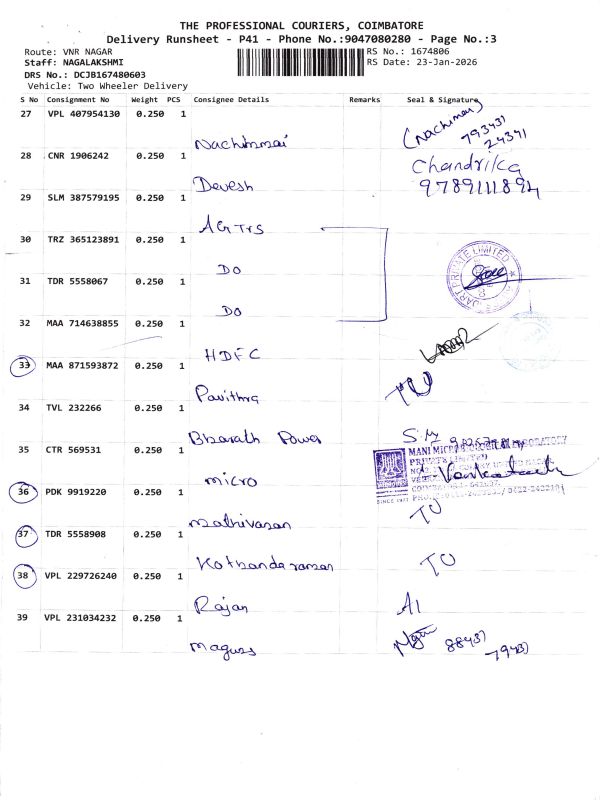 THE PROFESSIONAL COURIERS, COIMBATORE
Delivery Runsheet - P41 - Phone No.:9047080280 - Page No.:3
Route: VNR NAGAR
RS No.: 1674806
Staff: NAGALAKSHMI
RS Date: 23-Jan-2026
DRS No.: DCJB167480603
Vehicle: Two Wheeler Delivery
S No Consignment No Weight PCS Consignee Details Remarks Seal & Signature
27 VPL 407954130 0.250 1 Nachimmai (Nachimai) 793431 24341
28 CNR 1906242 0.250 1 Devesh Chandrika 9789111894
29 SLM 387579195 0.250 1 AGTrS
30 TRZ 365123891 0.250 1 DO
31 TDR 5558067 0.250 1 DO
PRIVATE LIMITED
32 MAA 714638855 0.250 1 HDFC
33 MAA 871593872 0.250 1 Pavithra TO
34 TVL 232266 0.250 1 Bharath Power
35 CTR 569531 0.250 1 micro
MANI MICROBIOLOGICAL LABORATORY
PRIVATE LIMITED
Venkatesh
SINCE 1977
36 PDK 9919220 0.250 1 Mathivasan TO
37 TDR 5558908 0.250 1 Kothandaraman TO
38 VPL 229726240 0.250 1 Rajan AI
39 VPL 231034232 0.250 1 maguss 88431 79431